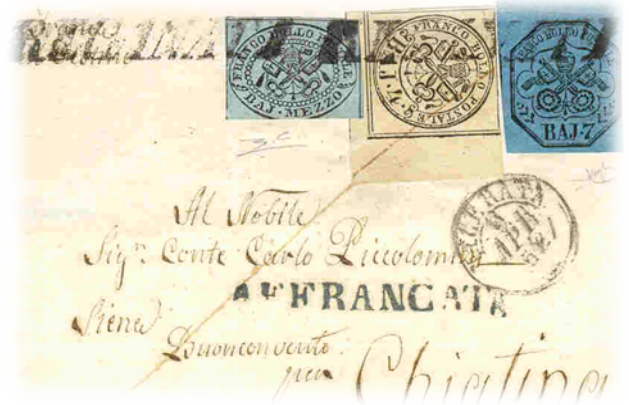 FRANCO BOLLO POSTALE
BAJ·MEZZO
FRANCO BOLLO POSTALE
FRANCO BOLLO POSTALE
BAJ·7
Al Nobile
Sigr. Conte Carlo Piccolomini
AFFRANCATA
Siena
Buonconvento
per Chiatina
APR